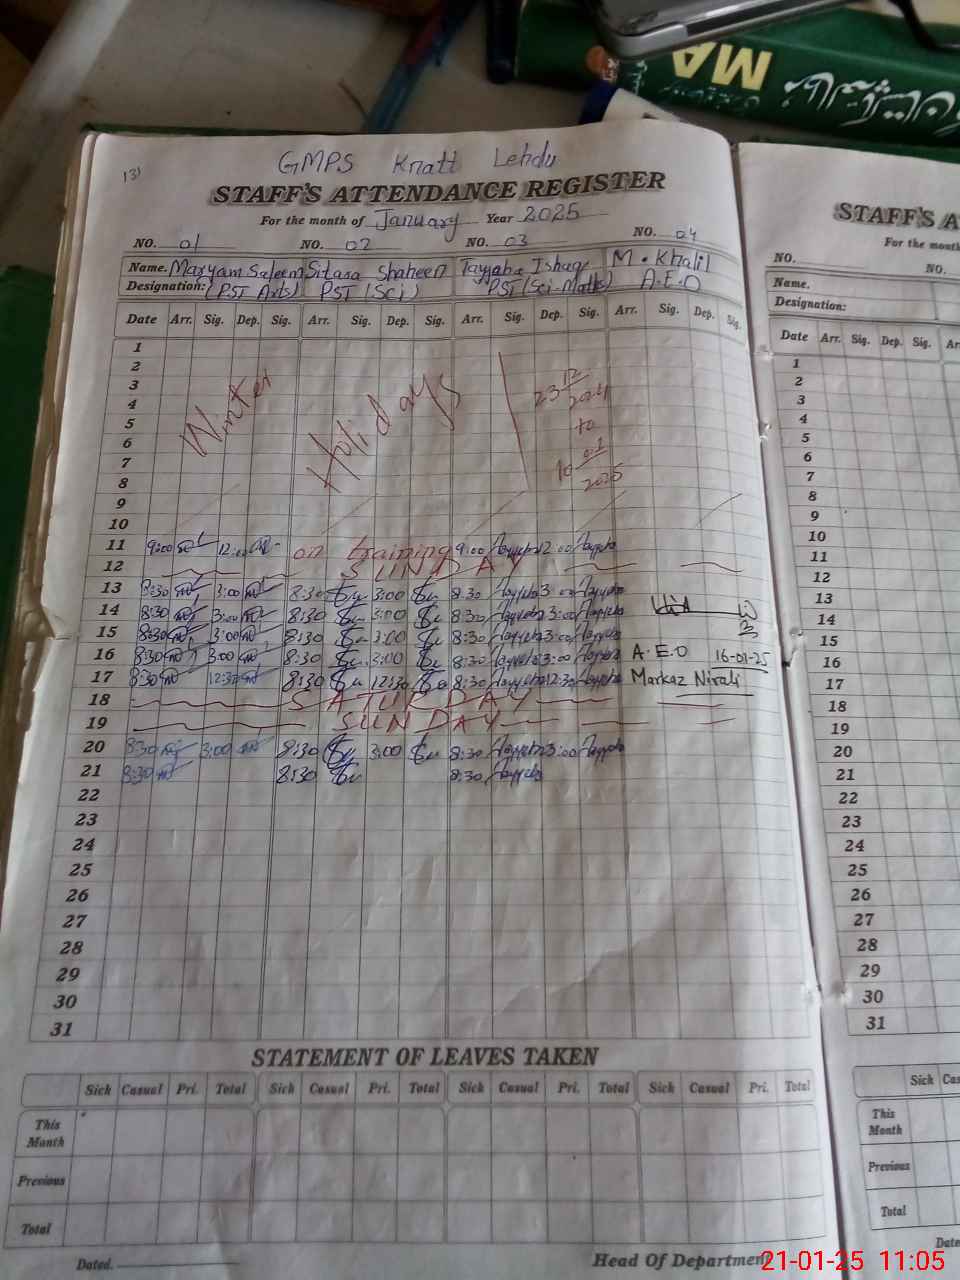 MA
131
GMPS Knatt Lehdu
STAFF'S ATTENDANCE REGISTER
For the month of January Year 2025
NO. 01 NO. 02 NO. 03 NO. 04
Name. Maryam Saleem Sitara Shaheen Tayyaba Ishaq M. Khalil
Designation: (PST Arts) PST (Sci) PST (Sci-Math) A.E.O
Date Arr. Sig. Dep. Sig. Arr. Sig. Dep. Sig. Arr. Sig. Dep. Sig. Arr. Sig. Dep. Sig.
1
2
3
4
5
6
7
8
9
10
Winter Holidays
23 12/2024
to
10 01/2025
11 9:00 12:00 on training 9:00 Tayyaba 12:00 Tayyaba
12 SUNDAY
13 8:30 3:00 8:30 3:00 8:30 Tayyaba 3:00 Tayyaba
14 8:30 3:00 8:30 3:00 8:30 Tayyaba 3:00 Tayyaba
15 8:30 3:00 8:30 3:00 8:30 Tayyaba 3:00 Tayyaba
16 8:30 3:00 8:30 3:00 8:30 Tayyaba 3:00 Tayyaba A.E.O 16-01-25
17 8:30 12:30 8:30 12:30 8:30 Tayyaba 12:30 Tayyaba Markaz Nirali
18 SATURDAY
19 SUNDAY
20 8:30 3:00 8:30 3:00 8:30 Tayyaba 3:00 Tayyaba
21 8:30 8:30 8:30 Tayyaba
22
23
24
25
26
27
28
29
30
31
STATEMENT OF LEAVES TAKEN
Sick Casual Pri. Total Sick Casual Pri. Total Sick Casual Pri. Total Sick Casual Pri. Total
This Month
Previous
Total
Dated.
Head Of Department
STAFF'S A
For the month
NO. NO.
Name.
Designation:
Date Arr. Sig. Dep. Sig. Ar
1
2
3
4
5
6
7
8
9
10
11
12
13
14
15
16
17
18
19
20
21
22
23
24
25
26
27
28
29
30
31
Sick Cas
This Month
Previous
Total
Date
21-01-25 11:05